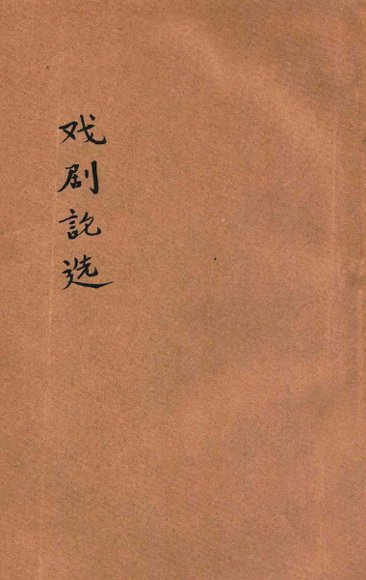 戏剧论选